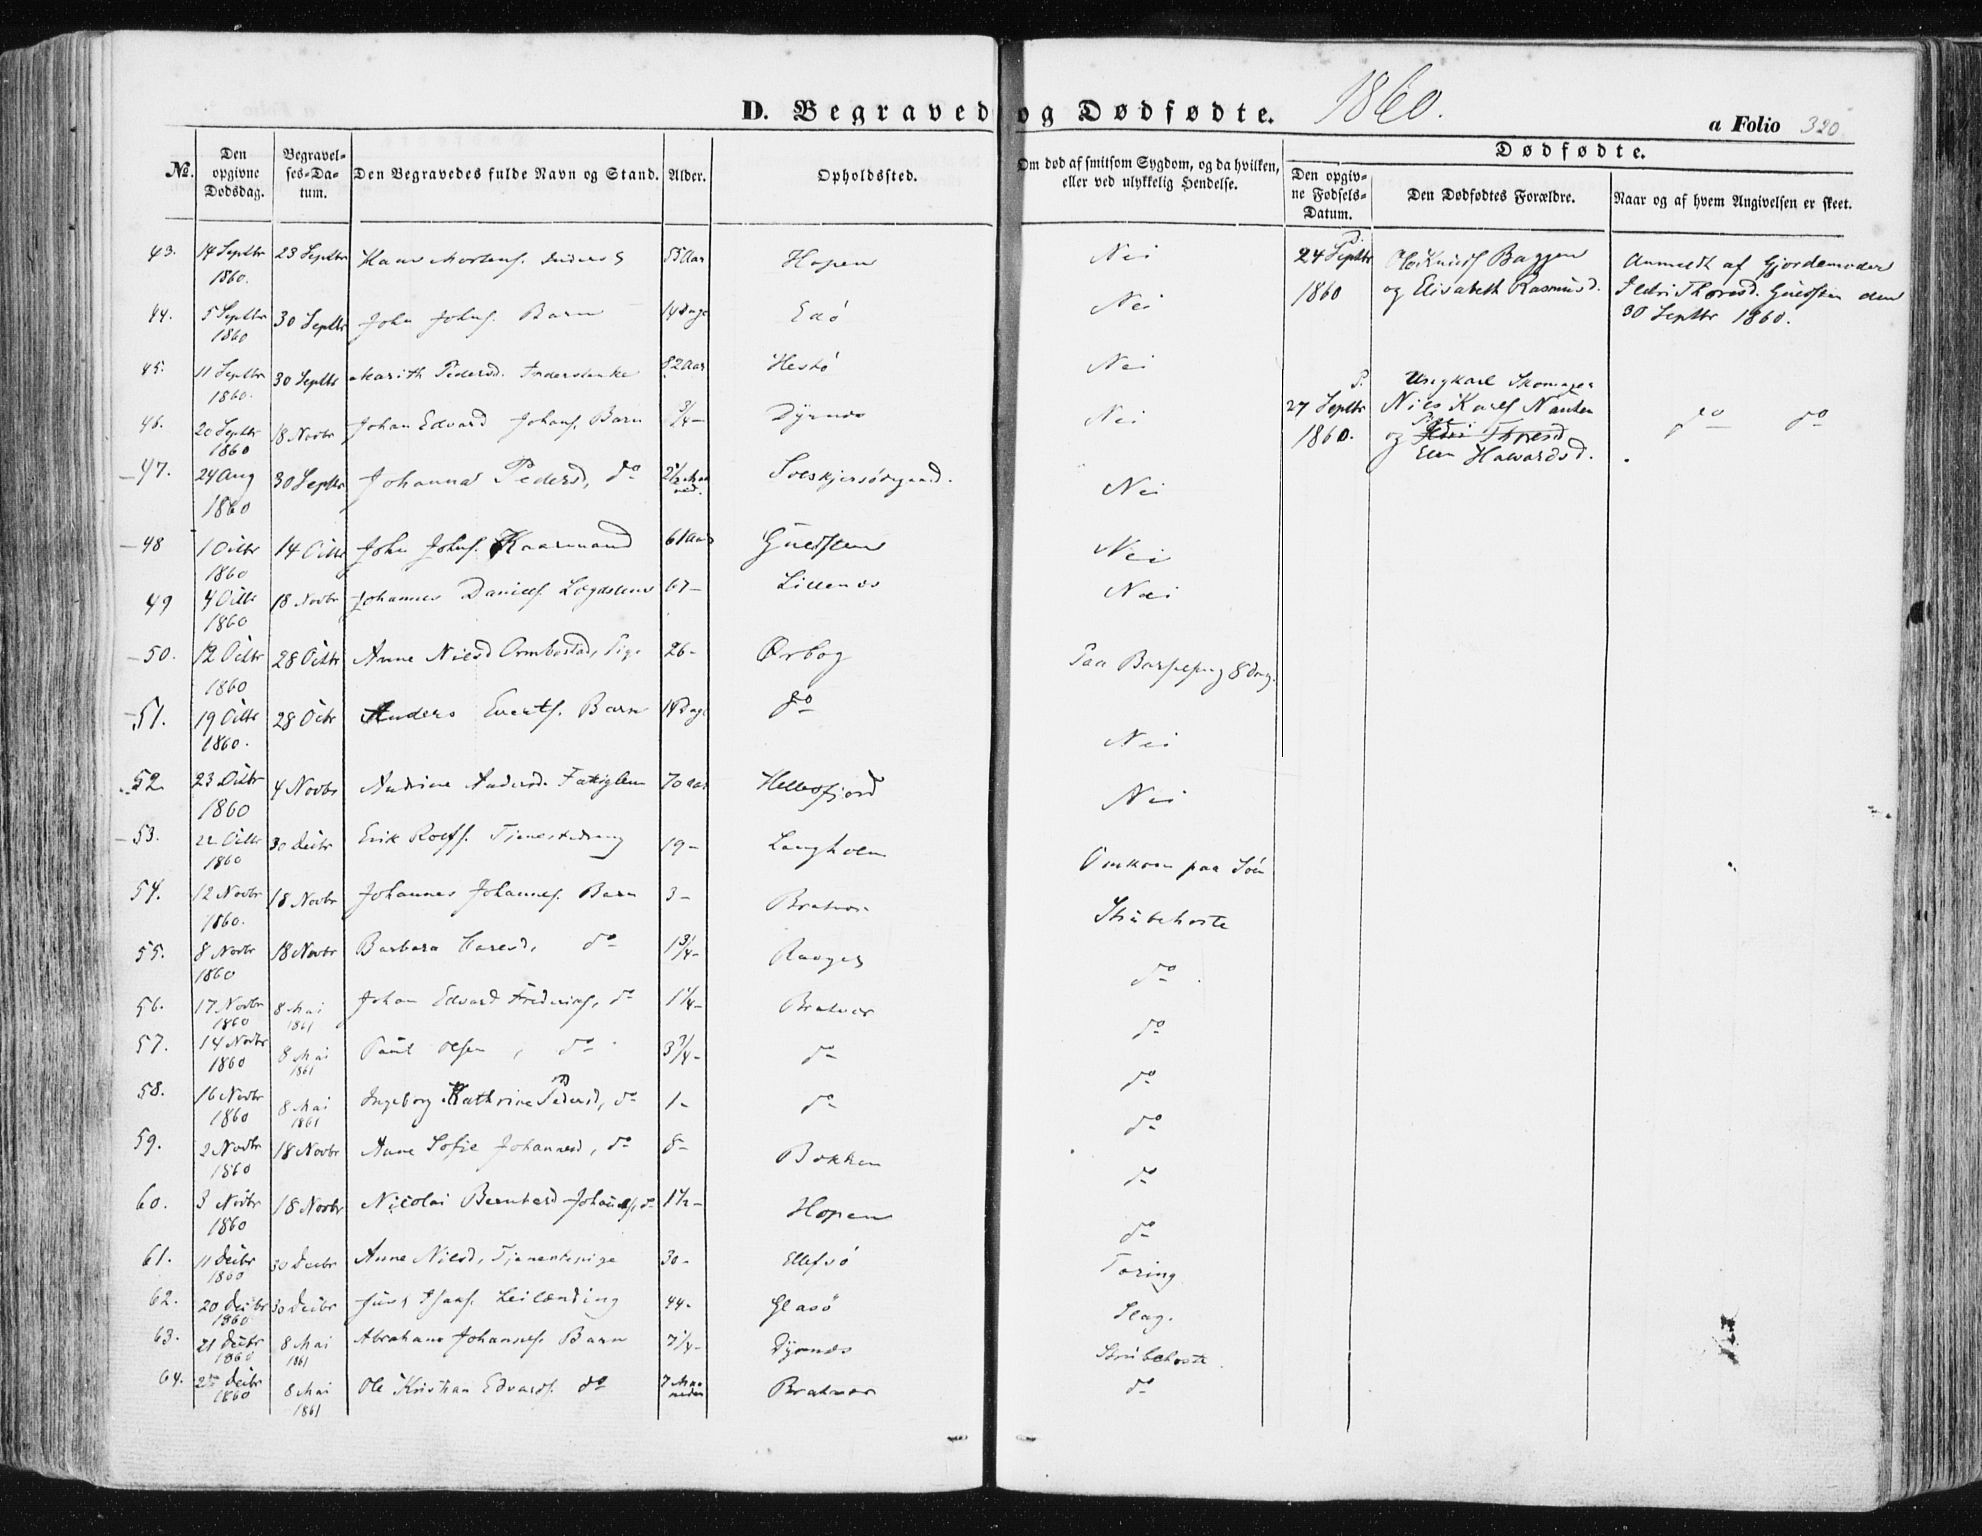 D. Begravede og Dødfødte. 1860.
a Folio 320.
No. | Den opgivne Dødsdag. | Begravelses-Datum. | Den Begravedes fulde Navn og Stand. | Alder. | Opholdssted. | Om død af smitsom Sygdom, og da hvilken, eller ved ulykkelig Hendelse.
Dødfødte.
Den opgivne Fødsels-Datum. | Den Dødfødtes Forældre. | Naar og af hvem Angivelsen er skeet.
43. 14 Septbr 1860. 23 Septbr Hans Mortens. 55 Aar Hopen Nei
44. 5 Septbr 1860 30 Septbr John Johns. Barn 14 Dage Edø Nei
45. 11 Septbr 1860. 30 Septbr Marith Pedersd. 82 Aar Hestø Nei
46. 20 Septbr 1860 18 Novbr Johan Edvard Johans. Barn 3/4 - Dyrnes Nei
47. 24 Aug 1860 30 Septbr Johanna Pedersd, do 2 1/2 Maaned. Nei
48 1 Octbr 1860 14 Octbr John Johns. Kaarmand 61 Aar Gjedsten Nei
49 4 Octbr 1860 18 Novbr Johannes Daniels. 67 - Lillenes Nei
50. 12 Octbr 1860 28 Octbr Anne Nilsd Ormbostad, Pige 26 - Ørbog Paa Barselseng 8 Dag.
51. 19 Octbr 1860. 28 Octbr Anders Everts. Barn 14 Dage do Nei
52 23 Octbr 1860 4 Novbr Andrine Andersd. Fattiglem 70 Aar Hellesfjord Nei
53. 22 Octbr 1860 30 Decbr Erik Rolfs. Tjenestedreng 19 - Langholm Omkom paa Søen
54. 12 Novbr 1860. 18 Novbr Johannes Johannes. Barn 3 - Bratvær Strubehoste
55. 8 Novbr 1860 18 Novbr Barbara Laresd, do 1 3/4 - Ravges do
56. 17 Novbr 1860 8 Mai 1861 Johan Edvard Frederiks, do 1 1/4 - Bratvær do
57. 14 Novbr 1860 8 Mai 1861 Paul Olsen, do 3 3/4 - do do
58. 16 Novbr 1860 8 Mai 1861 Ingeborg Kathrine Pedersd, do 1 - do do
59. 2 Novbr 1860 18 Novbr Anne Sofie Johannesd, do 8 - Bekken do
60. 3 Novbr 1860 18 Novbr Nicolai Bernhard Johans., do 1 1/2 - Hopen do
61. 11 Decbr 1860 30 Decbr Anne Nilsd, Tjenestepige 30 - Ellefsø Tæring
62. 20 Decbr 1860 30 Decbr Jens Isaks. Leilænding 44 - Glasø Slag.
63. 21 Decbr 1860 8 Mai 1861 Abraham Johannes. Barn 7 1/4 - Dyrnes Strubehoste
64. Decbr 1860 8 Mai 1861 Ole Kristian Edvards. do 7 Maaneder Bratvær do
24 Septbr 1860 Ole Knuds. Baggen og Elisabeth Rasmusd. Anmeldt af Gjordemoder Ildri Thoresd. Gjedsten den 30 Septbr 1860.
27 Septbr 1860. Ungkarl Skomager Nils Karls Nausten og Pige Ildri Thoresd Elen Halvardsd. do do